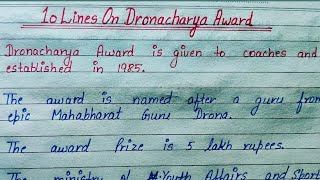 10 Lines On Dronacharya Award
Dronacharya Award is given to coaches and
established in 1985.
The award is named after a guru from
epic Mahabharat Guru Drona.
The award Prize is 5 lakh rupees.
The ministry of Youth Affairs and Sport